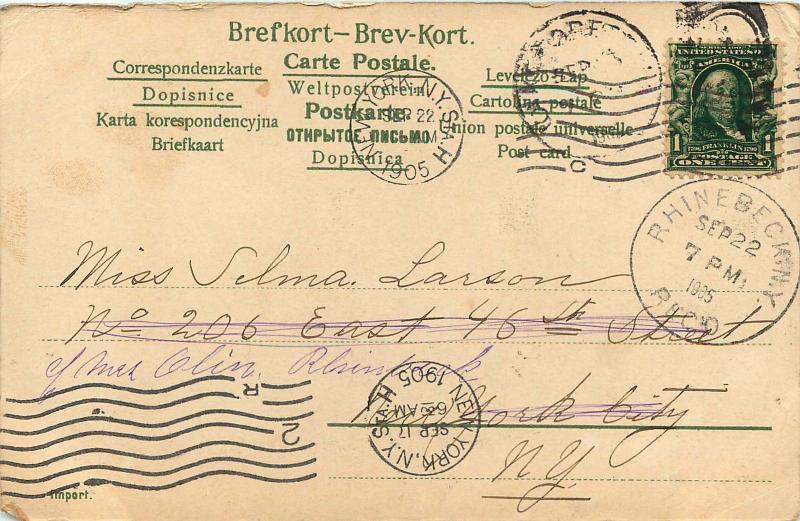 Brefkort–Brev-Kort.
Correspondenzkarte
Dopisnice
Karta korespondencyjna
Briefkaart
Carte Postale.
Weltpostverein
Postkarte.
ОТКРЫТОЕ ПИСЬМО
Dopisnica
Levelező-Lap
Cartolina postale
Union postale universelle
Post card
NEW YORK, N.Y. STA. H
SEP 22
AM
1905
SEP
C
SERIES 1902
UNITED STATES OF
AMERICA
1706. FRANKLIN 1790
1 POSTAGE 1
ONE CENT
RHINEBECK, N.Y.
SEP 22
7 PM
1905
REC'D
Miss Selma. Larson
No 206 East 46th Street
c/o Mrs Olin, Rhinbeck
New York City
NY
NEW YORK, N.Y. STA. H
SEP 17
6 30 AM
1905
R
2
Import.